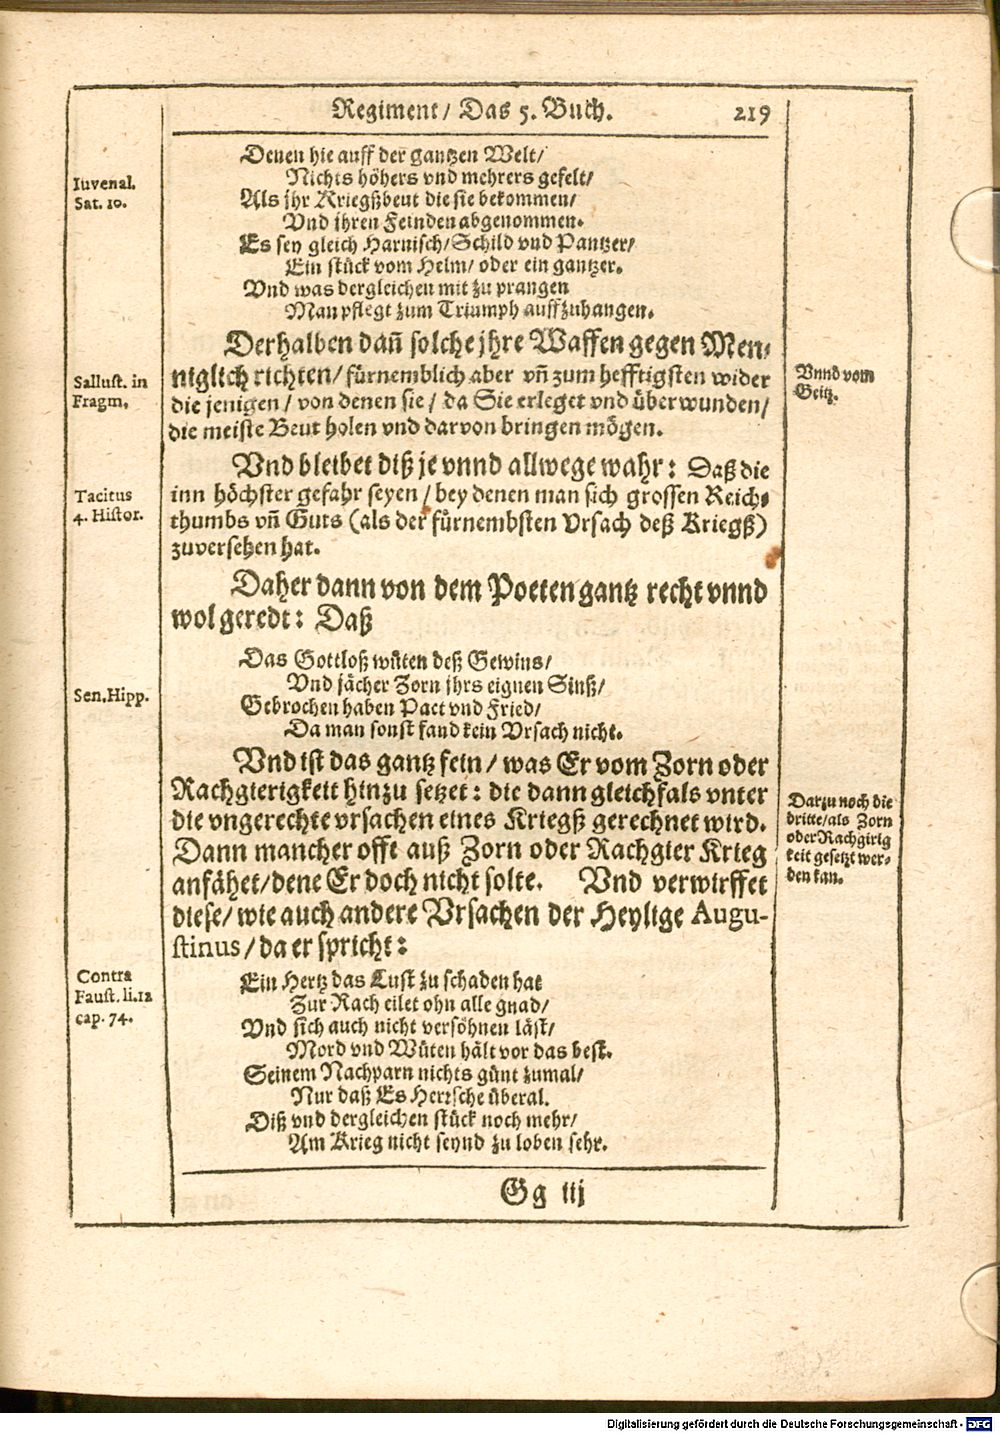 Regiment/ Das 5. Buch. 219
Iuvenal.
Sat. 10.
Denen hie auff der gantzen Welt/
Nichts höhers vnd mehrers gefelt/
Als jhr Kriegßbeut die sie bekommen/
Vnd jhren Feinden abgenommen.
Es sey gleich Harnisch/Schild vnd Pantzer/
Ein stück vom Helm/ oder ein gantzer.
Vnd was dergleichen mit zu prangen
Man pflegt zum Triumph auffzuhangen.
Derhalben dañ solche jhre Waffen gegen Men-
niglich richten/ fürnemblich aber vñ zum hefftigsten wider
die jenigen/ von denen sie/ da Sie erleget vnd überwunden/
die meiste Beut holen vnd darvon bringen mögen.
Sallust. in
Fragm.
Vnnd vom
Geitz.
Vnd bleibet diß je vnnd allwege wahr: Daß die
inn höchster gefahr seyen/ bey denen man sich grossen Reich-
thumbs vñ Guts (als der fürnembsten Vrsach deß Kriegß)
zuversehen hat.
Tacitus
4. Histor.
Daher dann von dem Poeten gantz recht vnnd
wol geredt: Daß
Das Gottloß wüten deß Gewins/
Vnd jächer Zorn jhrs eignen Sinß/
Gebrochen haben Pact vnd Fried/
Da man sonst fand kein Vrsach nicht.
Sen. Hipp.
Vnd ist das gantz fein/ was Er vom Zorn oder
Rachgierigkeit hinzu setzet: die dann gleichfals vnter
die vngerechte vrsachen eines Kriegß gerechnet wird.
Dann mancher offt auß Zorn oder Rachgier Krieg
anfähet/dene Er doch nicht solte. Vnd verwirffet
diese/ wie auch andere Vrsachen der Heylige Augu-
stinus/ da er spricht:
Darzu noch die
dritte/als Zorn
oder Rachgirig
keit gesetzt wer-
den kan.
Contra
Faust. li.12
cap. 74.
Ein Hertz das Lust zu schaden hat
Zur Rach eilet ohn alle gnad/
Vnd sich auch nicht versöhnen läst/
Mord vnd Wüten hält vor das best.
Seinem Nachparn nichts günt zumal/
Nur daß Es Herrsche überal.
Diß vnd dergleichen stück noch mehr/
Am Krieg nicht seynd zu loben sehr.
Gg iij
Digitalisierung gefördert durch die Deutsche Forschungsgemeinschaft - DFG